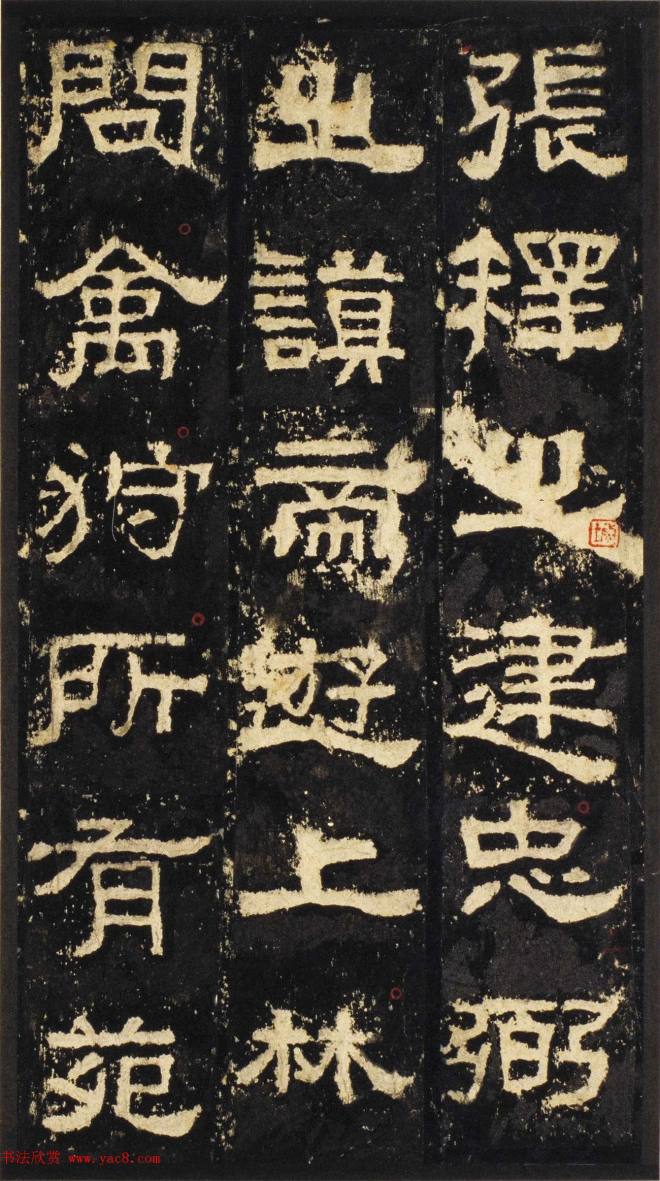 張釋之建忠弼
之謨帝遊上林
問禽狩所有苑
书法欣赏 www.yac8.com